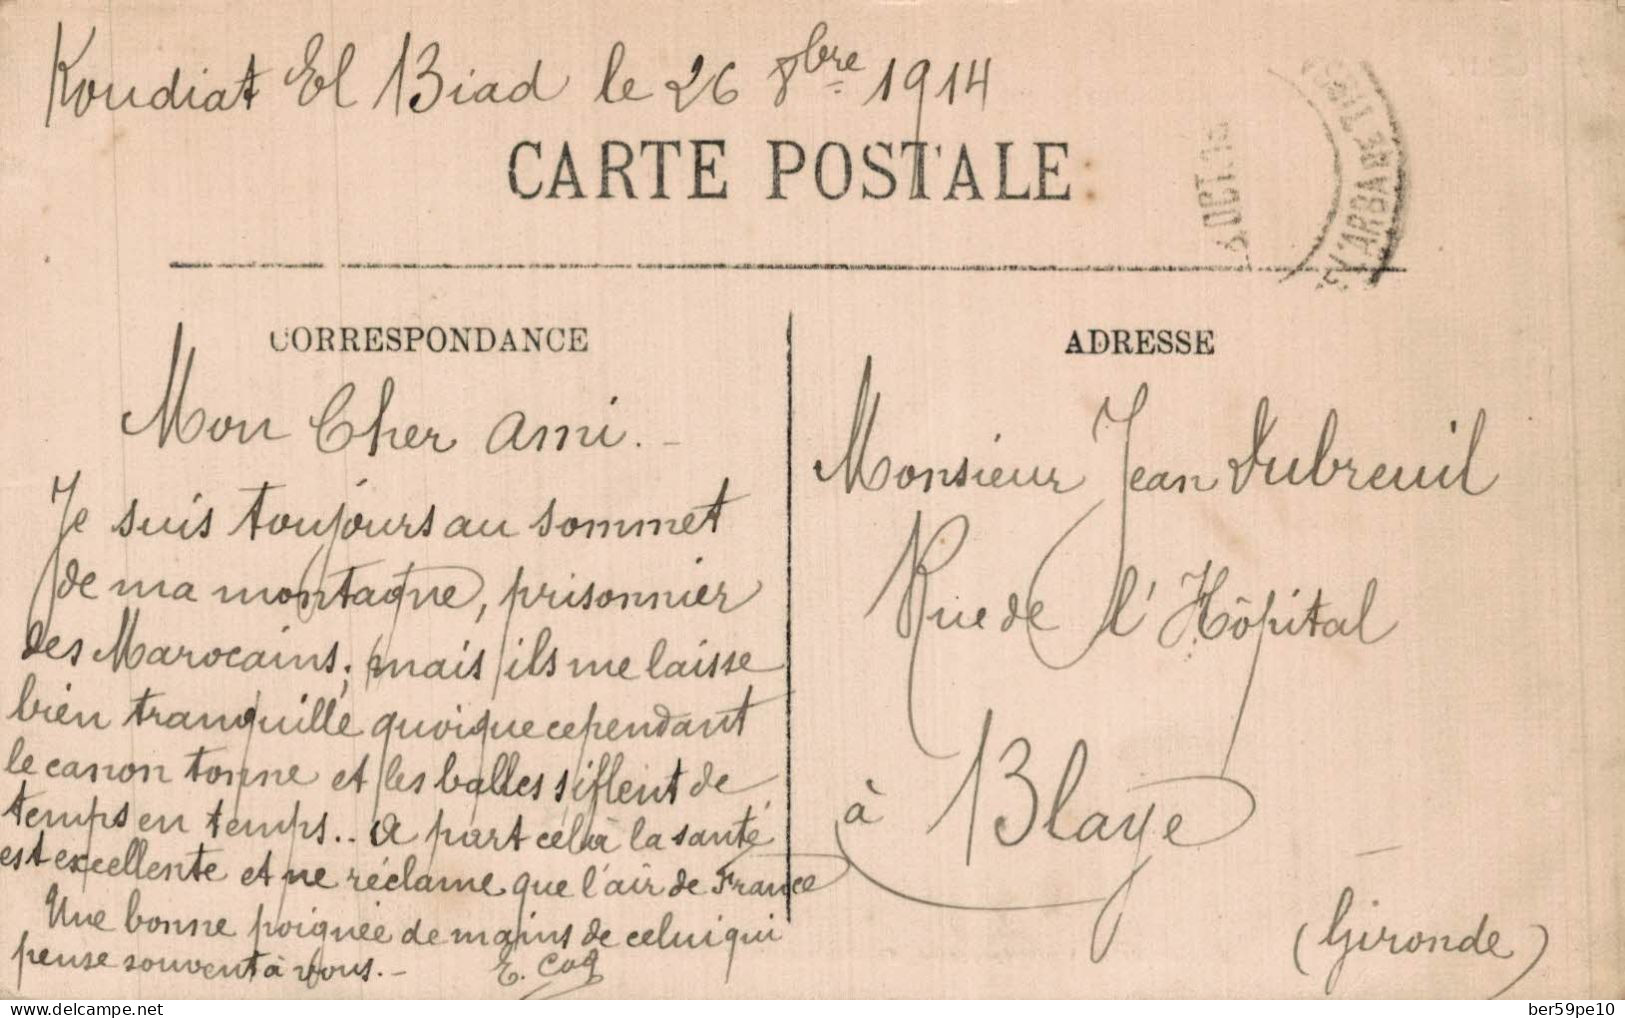 Koudiat El Biad le 26 8bre 1914
CARTE POSTALE
OCT.
L'ARBA DE
CORRESPONDANCE
Mon Cher ami.-
Je suis toujours au sommet
de ma montagne, prisonnier
des Marocains; mais ils me laisse
bien tranquille quoique cependant
le canon tonne et les balles siflent de
temps en temps.. A part cela la santé
est excellente et ne réclame que l'air de France
Une bonne poignée de mains de celui qui
pense souvent à vous.-
E. Coq
ADRESSE
Monsieur Jean Dubreuil
Rue de l'Hôpital
à Blaye
(Gironde)
delcampe.net
ber59pe10